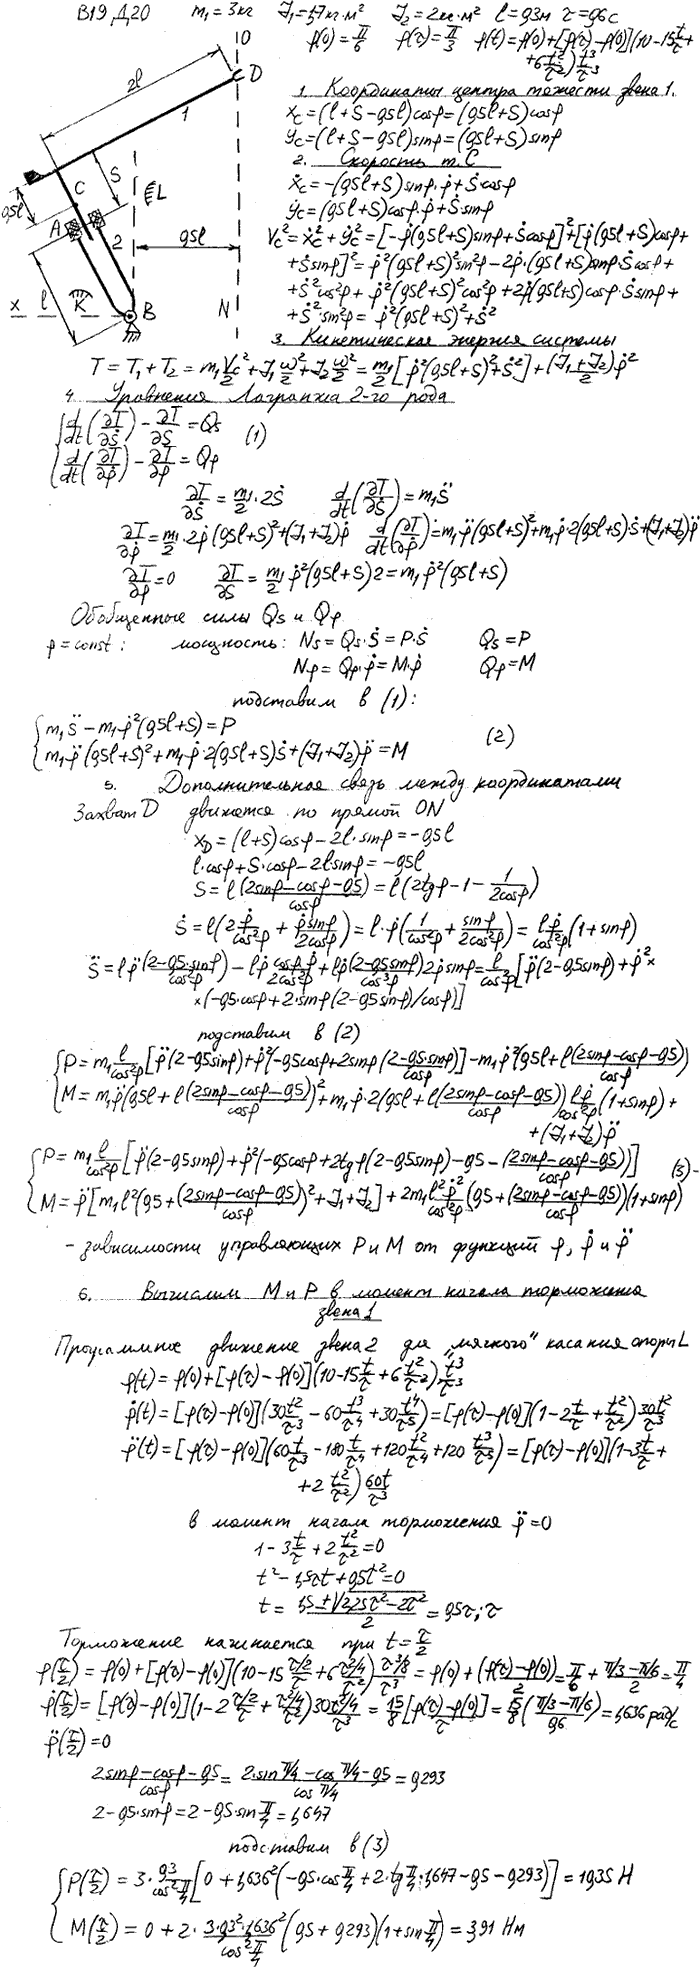 В19 Д20 m₁=3кг J₁=1,7кг·м² J₂=2кг·м² l=0,3м τ=0,6с
φ(0)=π/6 φ(τ)=π/3 φ(t)=φ(0)+[φ(τ)-φ(0)](10-15t/τ+
+6t²/τ²)t³/τ³
1. Координаты центра тяжести звена 1.
x_C=(l+S-0,5l)cosφ=(0,5l+S)cosφ
y_C=(l+S-0,5l)sinφ=(0,5l+S)sinφ
2. Скорость т. С
ẋ_C=-(0,5l+S)sinφ·φ̇+Ṡcosφ
ẏ_C=(0,5l+S)cosφ·φ̇+Ṡ·sinφ
V_C²=ẋ_C²+ẏ_C²=[-φ̇(0,5l+S)sinφ+Ṡcosφ]²+[φ̇(0,5l+S)cosφ+
+Ṡsinφ]²=φ̇²(0,5l+S)²sin²φ-2φ̇·(0,5l+S)sinφ·Ṡcosφ+
+Ṡ²cos²φ+φ̇²(0,5l+S)²cos²φ+2φ̇(0,5l+S)cosφ·Ṡsinφ+
+Ṡ²·sin²φ=φ̇²(0,5l+S)²+Ṡ²
O
D
2l
1
S
C
0,5l
A
2
L
0,5l
l
x
K
B
N
3. Кинетическая энергия системы
T=T₁+T₂=m₁V_C²/2+J₁ω²/2+J₂ω²/2=m₁/2[φ̇²(0,5l+S)²+Ṡ²]+(J₁+J₂)/2·φ̇²
4. Уравнения Лагранжа 2-го рода
d/dt(∂T/∂Ṡ)-∂T/∂S=Q_S
(1)
d/dt(∂T/∂φ̇)-∂T/∂φ=Q_φ
∂T/∂Ṡ=m₁/2·2Ṡ d/dt(∂T/∂Ṡ)=m₁S̈
∂T/∂φ̇=m₁/2·2φ̇(0,5l+S)²+(J₁+J₂)φ̇ d/dt(∂T/∂φ̇)=m₁φ̈(0,5l+S)²+m₁φ̇·2(0,5l+S)Ṡ+(J₁+J₂)φ̈
∂T/∂φ=0 ∂T/∂S=m₁/2φ̇²(0,5l+S)2=m₁φ̇²(0,5l+S)
Обобщенные силы Q_S и Q_φ
φ=const: мощность: N_S=Q_S·Ṡ=P·Ṡ Q_S=P
N_φ=Q_φ·φ̇=M·φ̇ Q_φ=M
подставим в (1):
m₁S̈-m₁φ̇²(0,5l+S)=P
(2)
m₁φ̈(0,5l+S)²+m₁φ̇·2(0,5l+S)Ṡ+(J₁+J₂)φ̈=M
5. Дополнительная связь между координатами
Захват D движется по прямой ON
x_D=(l+S)cosφ-2l·sinφ=-0,5l
l·cosφ+S·cosφ-2lsinφ=-0,5l
S=l(2sinφ-cosφ-0,5)/cosφ=l(2tgφ-1-1/(2cosφ))
Ṡ=l(2φ̇/cos²φ+φ̇sinφ/2cosφ)=l·φ̇(1/cos²φ+sinφ/2cos²φ)=lφ̇/cos²φ(1+sinφ)
S̈=lφ̈(2-0,5·sinφ)/cos²φ-lφ̇cosφ·φ̇/2cos²φ+lφ̇(2-0,5sinφ)/cos³φ·2φ̇sinφ=l/cos²φ[φ̈(2-0,5sinφ)+φ̇²×
×(-0,5·cosφ+2·sinφ(2-0,5sinφ)/cosφ)]
подставим в (2)
P=m₁l/cos²φ[φ̈(2-0,5sinφ)+φ̇²(-0,5cosφ+2sinφ(2-0,5·sinφ)/cosφ)]-m₁φ̇²(0,5l+l(2sinφ-cosφ-0,5)/cosφ)
M=m₁φ̈(0,5l+l(2sinφ-cosφ-0,5)/cosφ)²+m₁φ̇·2(0,5l+l(2sinφ-cosφ-0,5)/cosφ)lφ̇/cos²φ(1+sinφ)+
+(J₁+J₂)φ̈
P=m₁l/cos²φ[φ̈(2-0,5sinφ)+φ̇²(-0,5cosφ+2tgφ(2-0,5sinφ)-0,5-(2sinφ-cosφ-0,5)/cosφ)]
(3)-
M=φ̈[m₁l²(0,5+(2sinφ-cosφ-0,5)/cosφ)²+J₁+J₂]+2m₁l²φ̇²/cos²φ(0,5+(2sinφ-cosφ-0,5)/cosφ)(1+sinφ)
- зависимости управляющих P и M от функций φ, φ̇ и φ̈
6. Вычислим M и P в момент начала торможения
звена 1
Программное движение звена 2 для „мягкого" касания опоры L
φ(t)=φ(0)+[φ(τ)-φ(0)](10-15t/τ+6t²/τ²)t³/τ³
φ̇(t)=[φ(τ)-φ(0)](30t²/τ³-60t³/τ⁴+30t⁴/τ⁵)=[φ(τ)-φ(0)](1-2t/τ+t²/τ²)30t²/τ³
φ̈(t)=[φ(τ)-φ(0)](60t/τ³-180t/τ⁴+120t²/τ⁴+120t³/τ⁵)=[φ(τ)-φ(0)](1-3t/τ+
+2t²/τ²)60t/τ³
в момент начала торможения φ̈=0
1-3t/τ+2t²/τ²=0
t²-1,5τt+0,5τ²=0
t=(1,5±√(2,25τ²-2τ²))/2=0,5τ; τ
Торможение начинается при t=τ/2
φ(τ/2)=φ(0)+[φ(τ)-φ(0)](10-15τ/2/τ+6τ²/4/τ²)τ³/8/τ³=φ(0)+(φ(τ)-φ(0))/2=π/6+(π/3-π/6)/2=π/4
φ̇(τ/2)=[φ(τ)-φ(0)](1-2τ/2/τ+τ²/4/τ²)30τ²/4/τ³=15/8[φ(τ)-φ(0)]/τ=15/8((π/3-π/6)/0,6)=1,636рад/с
φ̈(τ/2)=0
(2sinφ-cosφ-0,5)/cosφ=(2·sinπ/4-cosπ/4-0,5)/cosπ/4=0,293
2-0,5·sinφ=2-0,5·sinπ/4=1,647
подставим в (3)
P(τ/2)=3·0,3/cos²π/4[0+1,636²(-0,5·cosπ/4+2·tgπ/4·1,647-0,5-0,293)]=10,35 Н
M(τ/2)=0+2·3·0,3²·1,636²/cos²π/4(0,5+0,293)(1+sinπ/4)=3,91 Нм